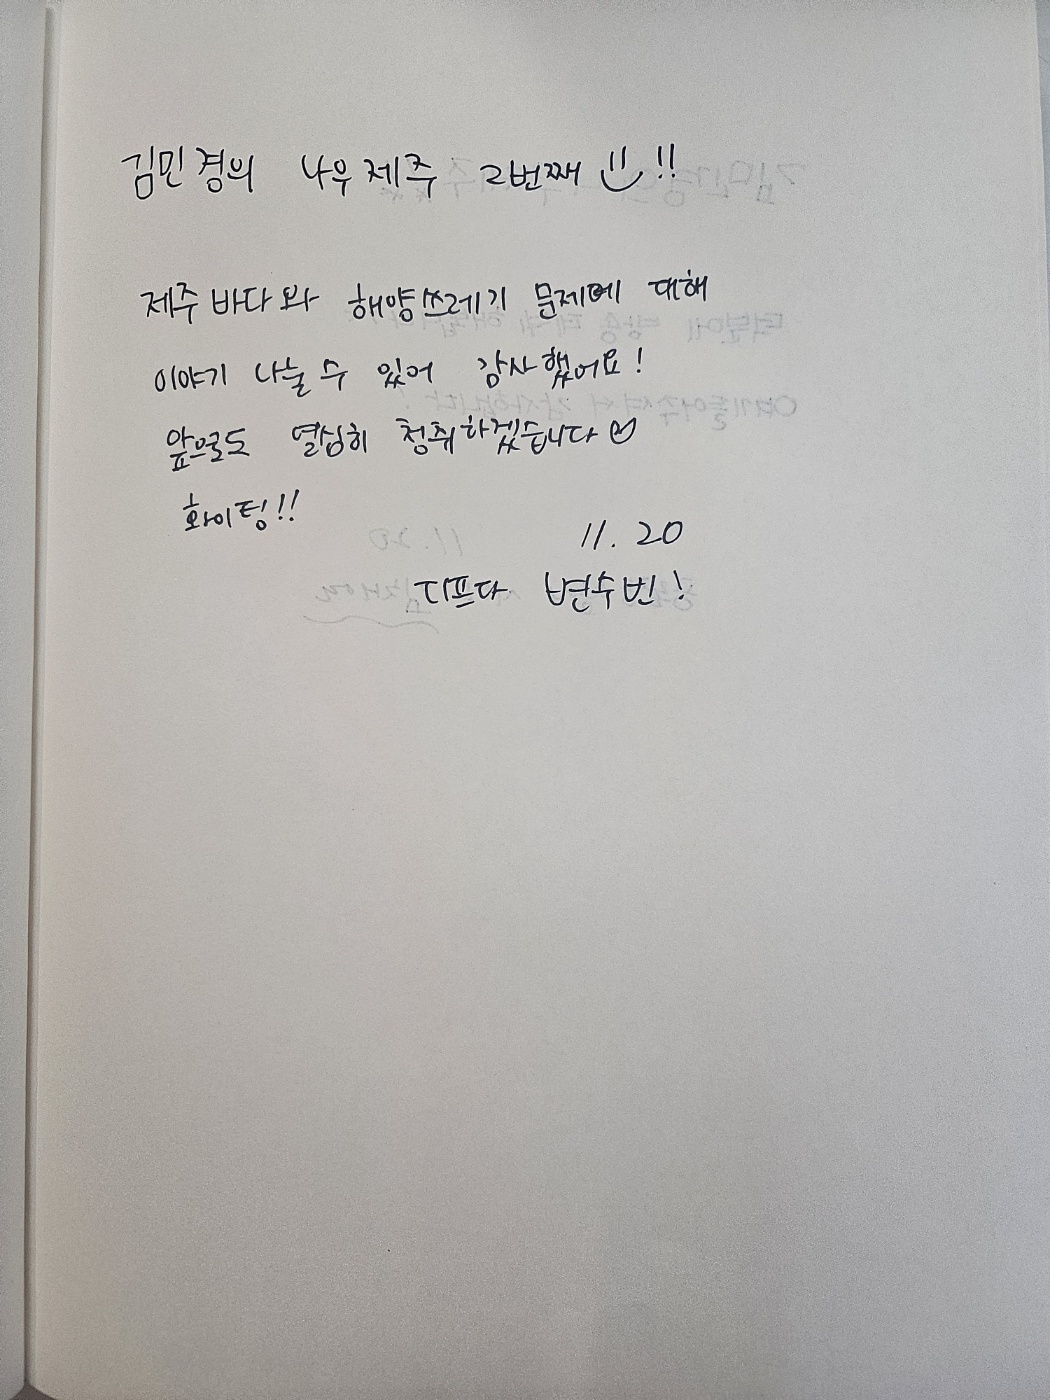 김민경의 나우제주 2번째 !!
제주 바다와 해양쓰레기 문제에 대해
이야기 나눌 수 있어 감사했어요!
앞으로도 열심히 청취하겠습니다♡
화이팅!!
11. 20
디프다 변수빈!